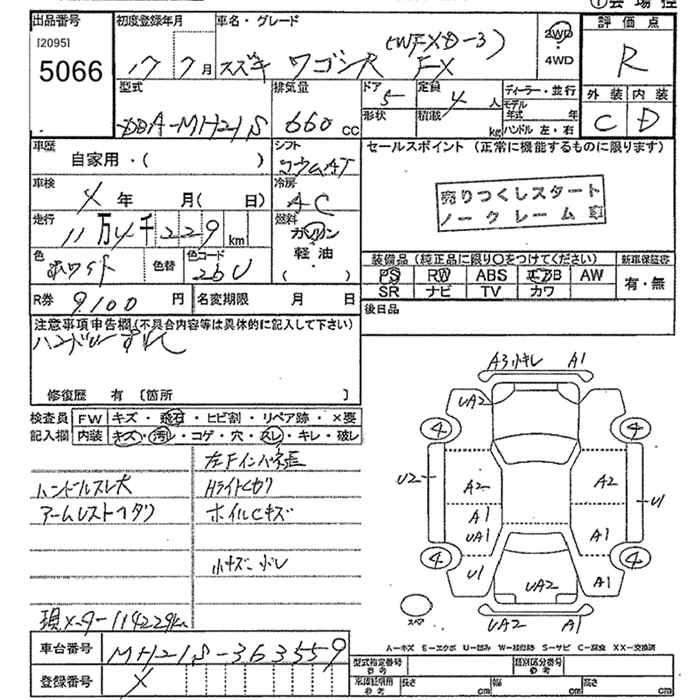 ①会場控
出品番号 初度登録年月 車名・グレード 評価点
[2095] 5066
17 7月 スズキ ワゴンR (WFXD-3) FX
2WD 4WD
R
型式 排気量 ドア 定員 ディーラー・並行 外装 内装
DBA-MH21S 660 cc 5 4人
形状 積載 kg モデル年式 年
ハンドル 左・右
C D
車歴 自家用・( ) シフト コラムAT
セールスポイント (正常に機能するものに限ります)
売りつくしスタート
ノークレーム
車検 4年 月( 日) 冷房 AC
走行 11万4千229km 燃料 ガソリン 軽油 ( )
色 ホワイト 色替 色コード 26U
装備品(純正品に限り○をつけてください) 新車保証書
PS RW ABS エアB AW 有・無
SR ナビ TV カワ
R券 9,100円 名変期限 月 日
後日品
注意事項申告欄(不具合内容等は具体的に記入して下さい)
修復歴 有 〔箇所 〕
検査員 FW キズ・飛石・ヒビ割・リペア跡・×要
記入欄 内装 キズ・汚レ・コゲ・穴・スレ・キレ・破レ
左Fインパネ張
ハンドルスレ大 Hライトくもり
アームレストヘタリ ホイルCキズ
小キズ 小凹
現メーター114229km
車台番号 MH21S-363559
登録番号 X
A3小キレ A1
UA2
4 4
U2 A2 A2 U1
A1
UA1 A1
4 4
U1 UA2 A1
スペア UA2 A1
A－キズ E－エクボ U－凹み W－補修跡 S－サビ C－腐食 XX－交換済
型式指定番号 参考 類別区分番号 参考
車検証引用 参考 長さ cm 幅 cm 高さ cm